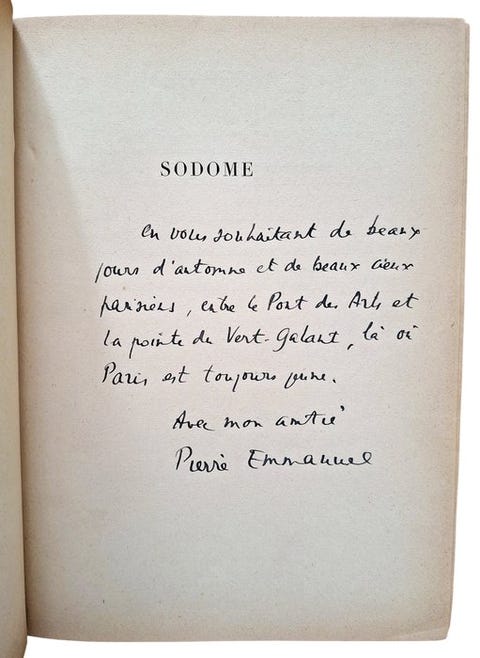 SODOME
en vous souhaitant de beaux
jours d'automne et de beaux cieux
parisiens, entre le Pont des Arts et
la pointe du Vert-Galant, là où
Paris est toujours jeune.
Avec mon amitié
Pierre Emmanuel